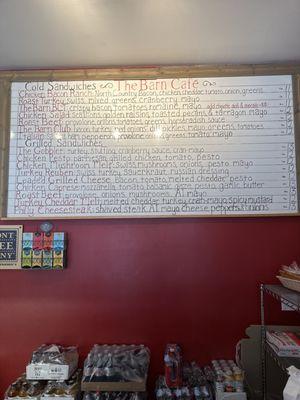 Cold Sandwiches The Barn Café
Chicken Bacon Ranch- North Country Bacon, chicken, cheddar, tomato, onion, greens
Roast Turkey, swiss, mixed greens, cranberry mayo
The Barn BLT- crispy bacon, tomatoes, romaine, mayo
Chicken Salad scallions, golden raisins, toasted pecans, & tarragon mayo
Roast Beef, provolone, tomatoes, greens, horseradish sauce
The Barn Club bacon, turkey, red onions, dill pickles, mayo, greens, tomatoes
Italian salami, ham, pepperoni, provolone, greens, tomato, mayo
Grilled Sandwiches
The Gobbler Turkey, stuffing, cranberry sauce, cran-mayo
Chicken Pesto parmesan, grilled chicken, tomato, pesto
Chicken Mushroom Melt, swiss, mushrooms, onions, pesto mayo
Turkey Reuben, swiss, turkey, sauerkraut, russian dressing
Loaded Grilled Cheese Bacon, tomato, melted cheddar, pesto
Chicken Caprese- mozzarella, tomato, balsamic, pesto, garlic butter
Roast Beef provolone, onions, mushrooms, A1 mayo
Turkey Cheddar Melt, melted cheddar, turkey, cran-mayo, spicy mustard
Philly Cheesesteak: shaved steak, A1 mayo, cheese, peppers & onions